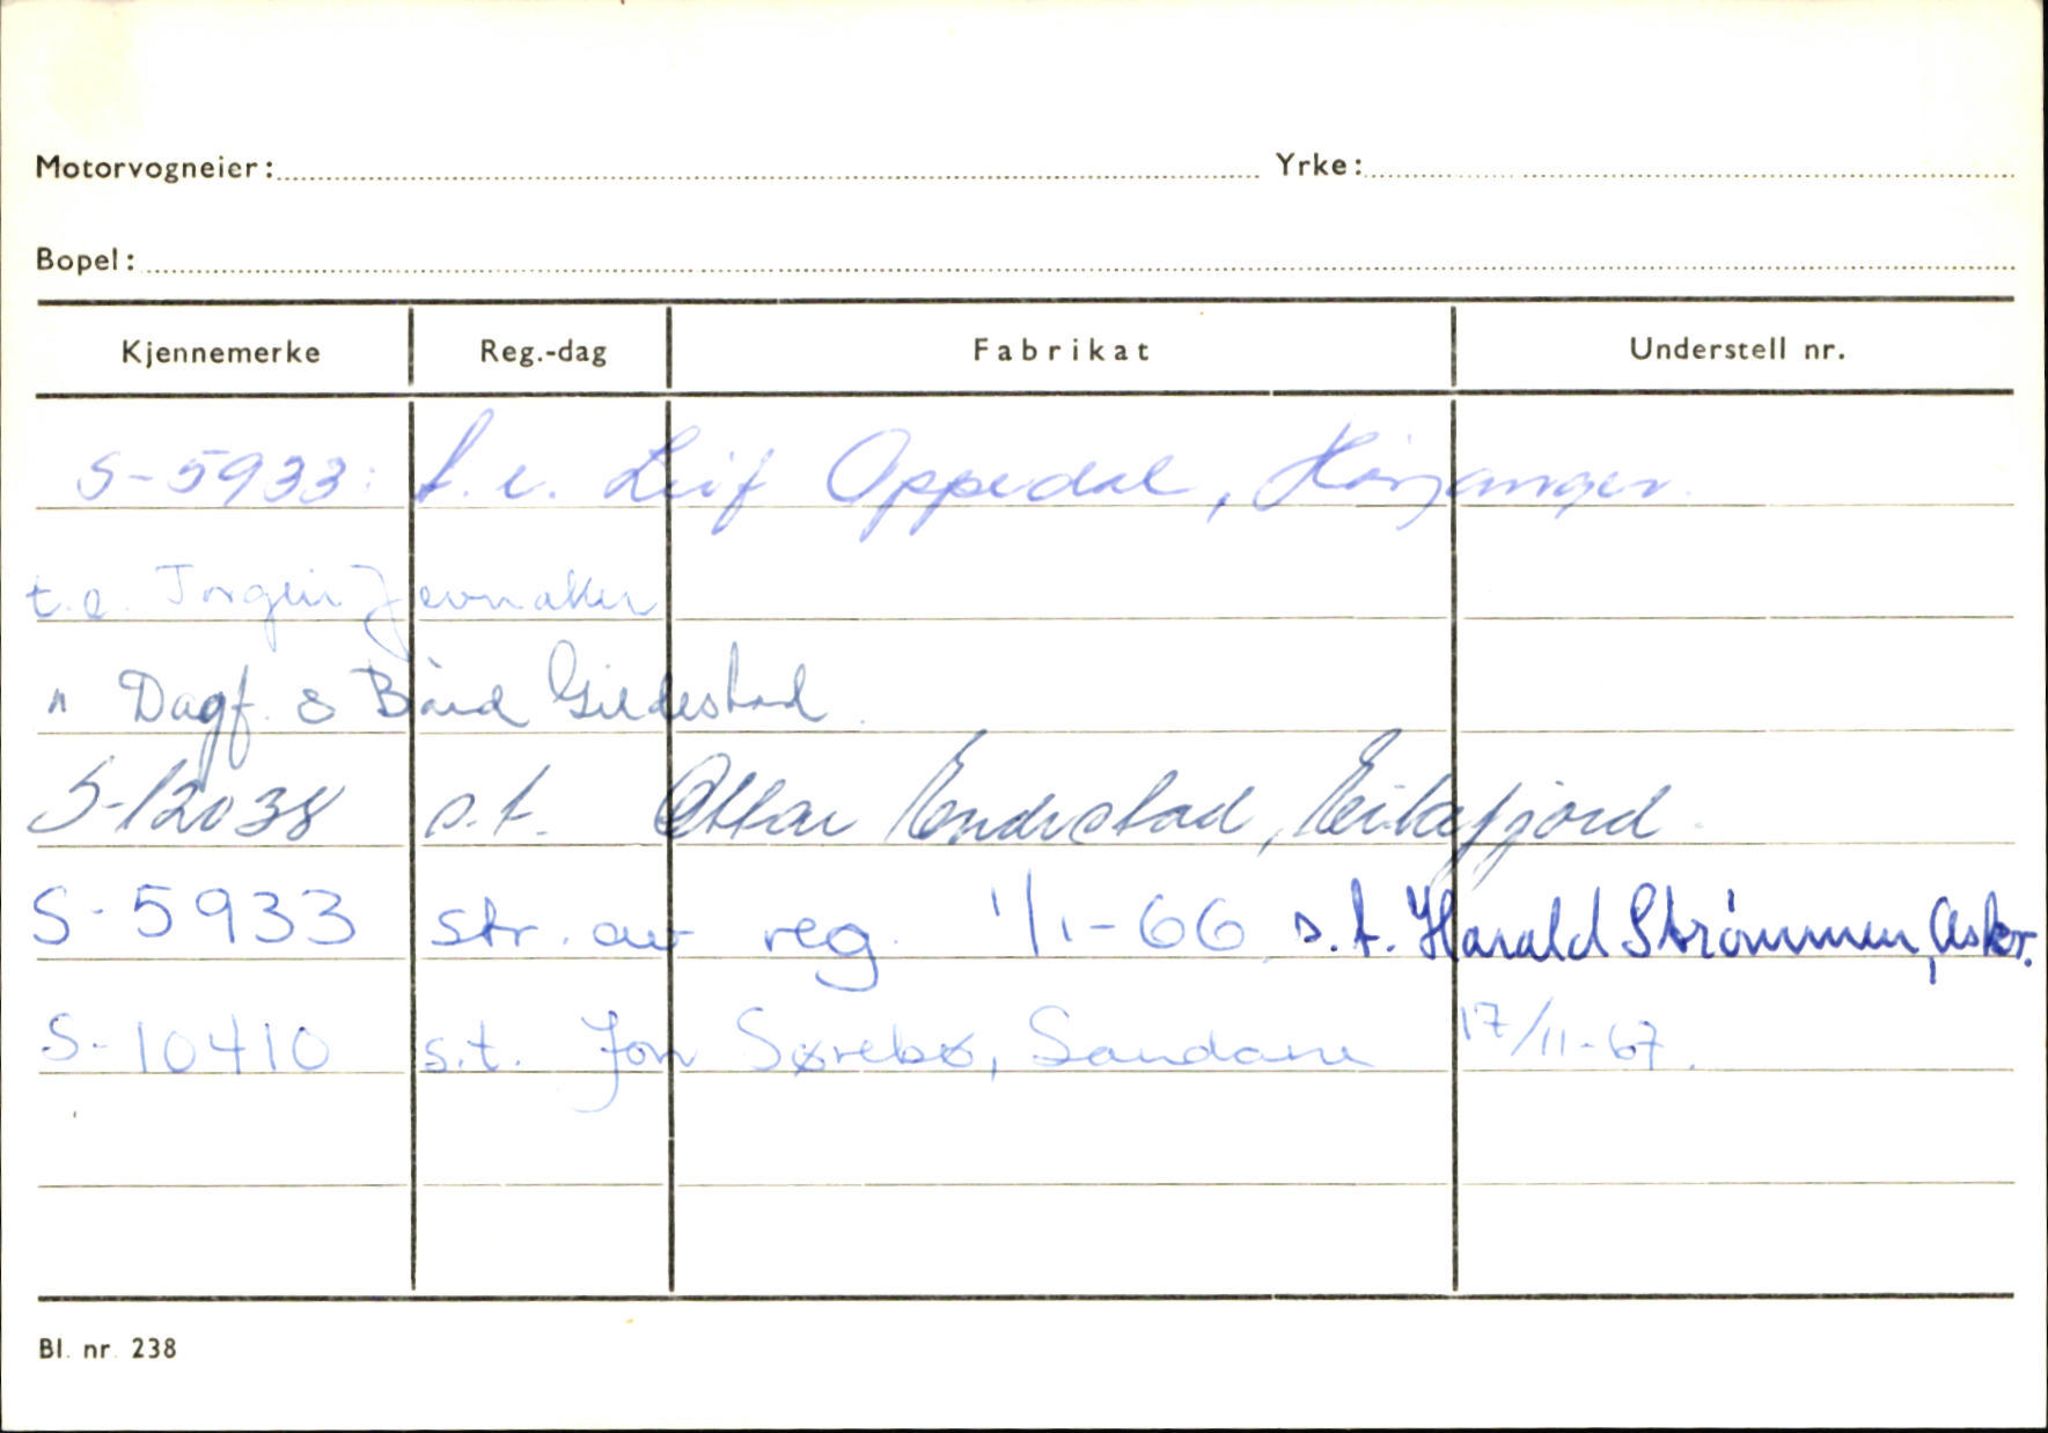 Motorvogneier: Yrke:
Bopel:
Kjennemerke Reg.-dag Fabrikat Understell nr.
S-5933: t.e. Leif Oppedal,
t.e. Torgeir Jevnaker
" Dagf. & Bård Gildestad.
S-12038 s.t. Ottar Endrestad, Eikefjord
S-5933 str. av reg. 1/1-66 s.t. Harald Strømmen, Askv.
S-10410 s.t. Jon Sørebø, Sandane 17/11-67.
Bl. nr. 238